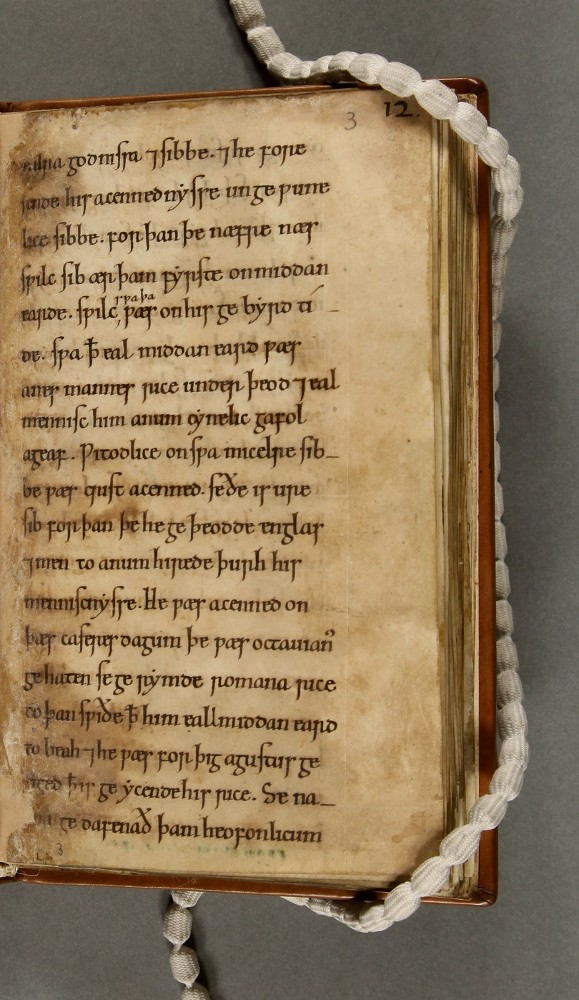 3 12.
godnẏsra ⁊ sibbe. ⁊ he fore
his acennednẏsse unge ƿune
lice sibbe. forþan þe næfre nær
sƿilc sib ær þam fẏrste onmiddan
earde. sƿilc, sƿa þa ƿær on his ge bẏrd ti
de. sƿa ꝥ eal middan eard ƿær
anes mannes rice under þeod ⁊ eal
mennisc him anum cẏnelic gafol
ageaf. Ƿitodlice on sƿa micelre sib
be ƿær crist acenned. seðe is ure
sib forþan þe he ge þeodde englas
⁊ men to anum hirede þurh his
menniscnẏsse. He ƿær acenned on
þær caseres dagum þe ƿær octauian
gehaten se ge rẏmde romana rice
to þan sƿiðe ꝥ him eall middan eard
to beah ⁊ he ƿær for þig agustus ge
ꝥ is ge ẏcende his rice. Se na
ge dafenað þam heofonlicum
3